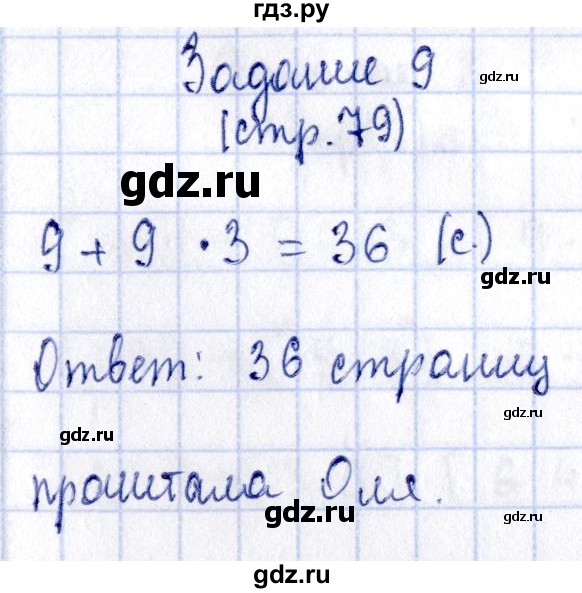 гдз.ру
Задание 9
gdz.ru
(стр. 79)
gdz.ru
gdz.ru
9 + 9 · 3 = 36 (с.)
gdz.ru
Ответ: 36 страниц
gdz.ru
gdz.ru
прочитала Оля.
gdz.ru
gdz.ru
gdz.ru